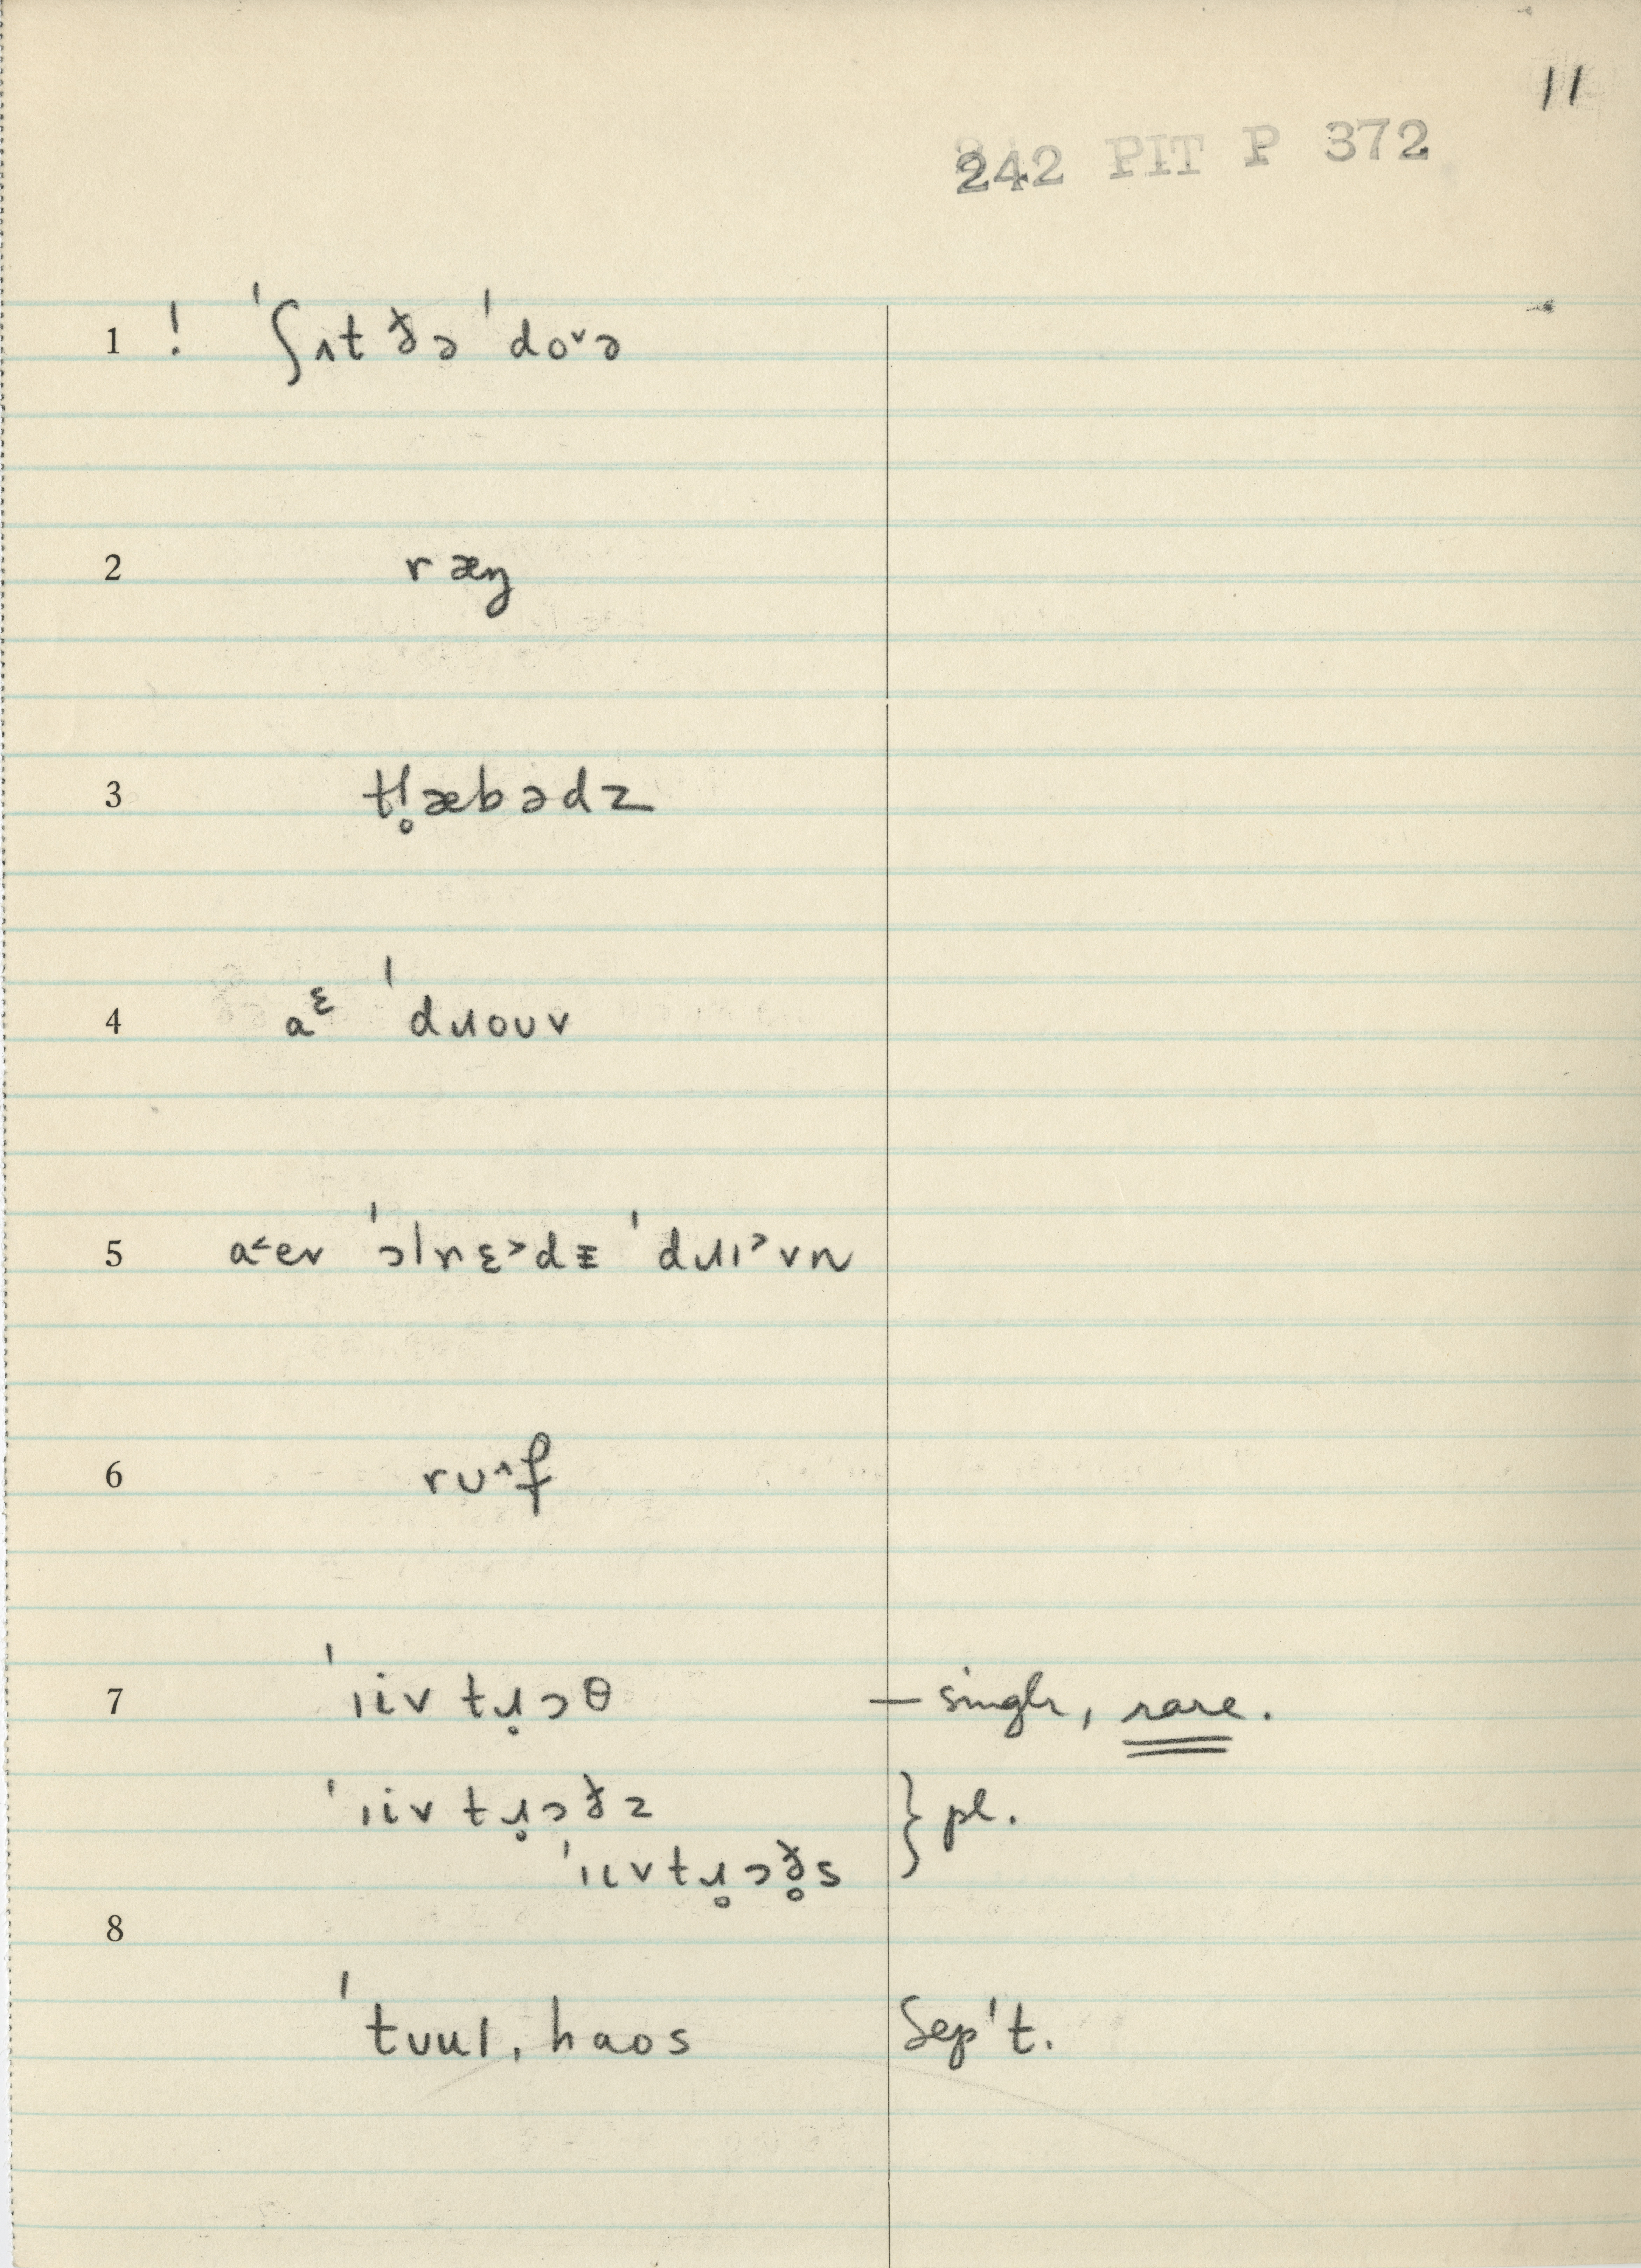 11
242 PIT P 372
1 ! ˈʃʌt ðə ˈdo˅ə
2 ræŋ
3 tɬ̥æbədz
4 aᵋ ˈdɹoʊv
5 a˂ev ˈɔlrɛ˃dɪ ˈdɹɪ˃vn
6 rʊ˄f
7 ˈiiv tɹ̥ɔθ — singlr, rare.
ˈiiv tɹ̥ɔðz } pl.
ˈiɩvtɹ̥ɔð̥s
8
ˈtuul, haos Sep't.